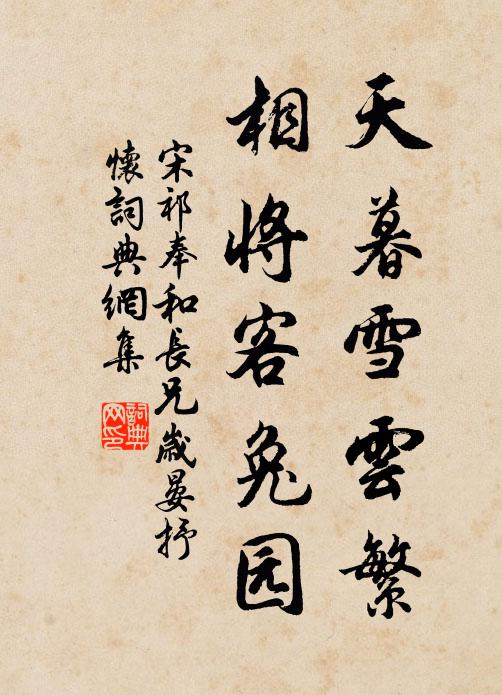 天暮雪雲繁
相将客兔园
宋祁奉和長兄歲晏抒
懷詞典網集
詞典
网印